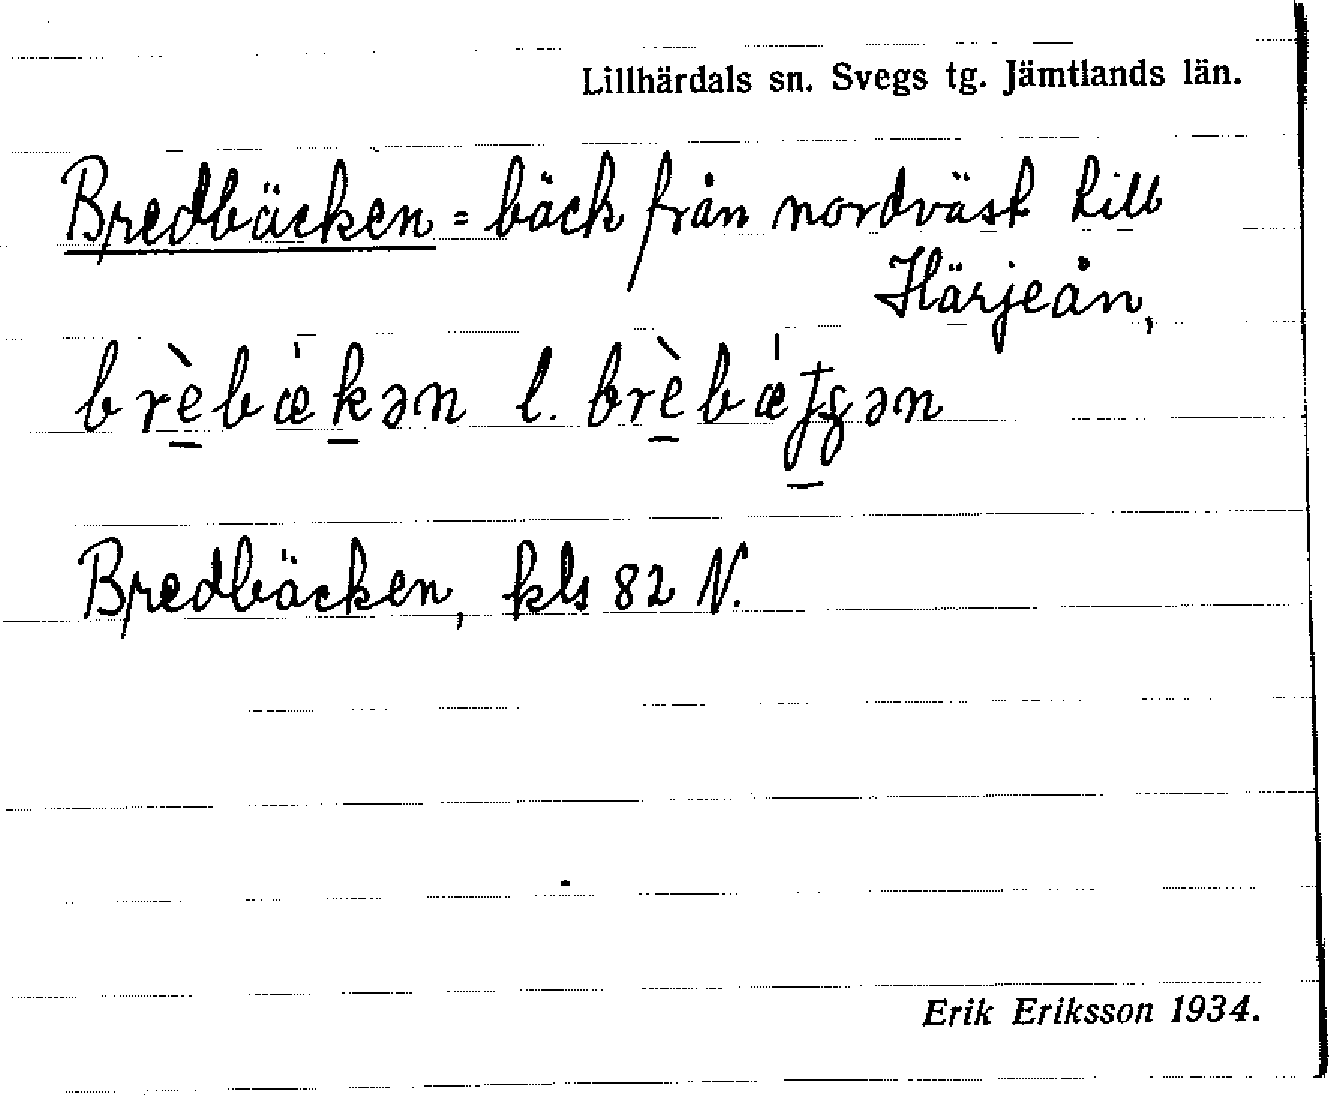 Lillhärdals sn. Svegs tg. Jämtlands län.
Bredbäcken = bäck från nordväst till
Härjeån,
brè̱bǽḵən l. brè̱bǽɟ̱ʂən
Bredbäcken, kls 82 N.
Erik Eriksson 1934.